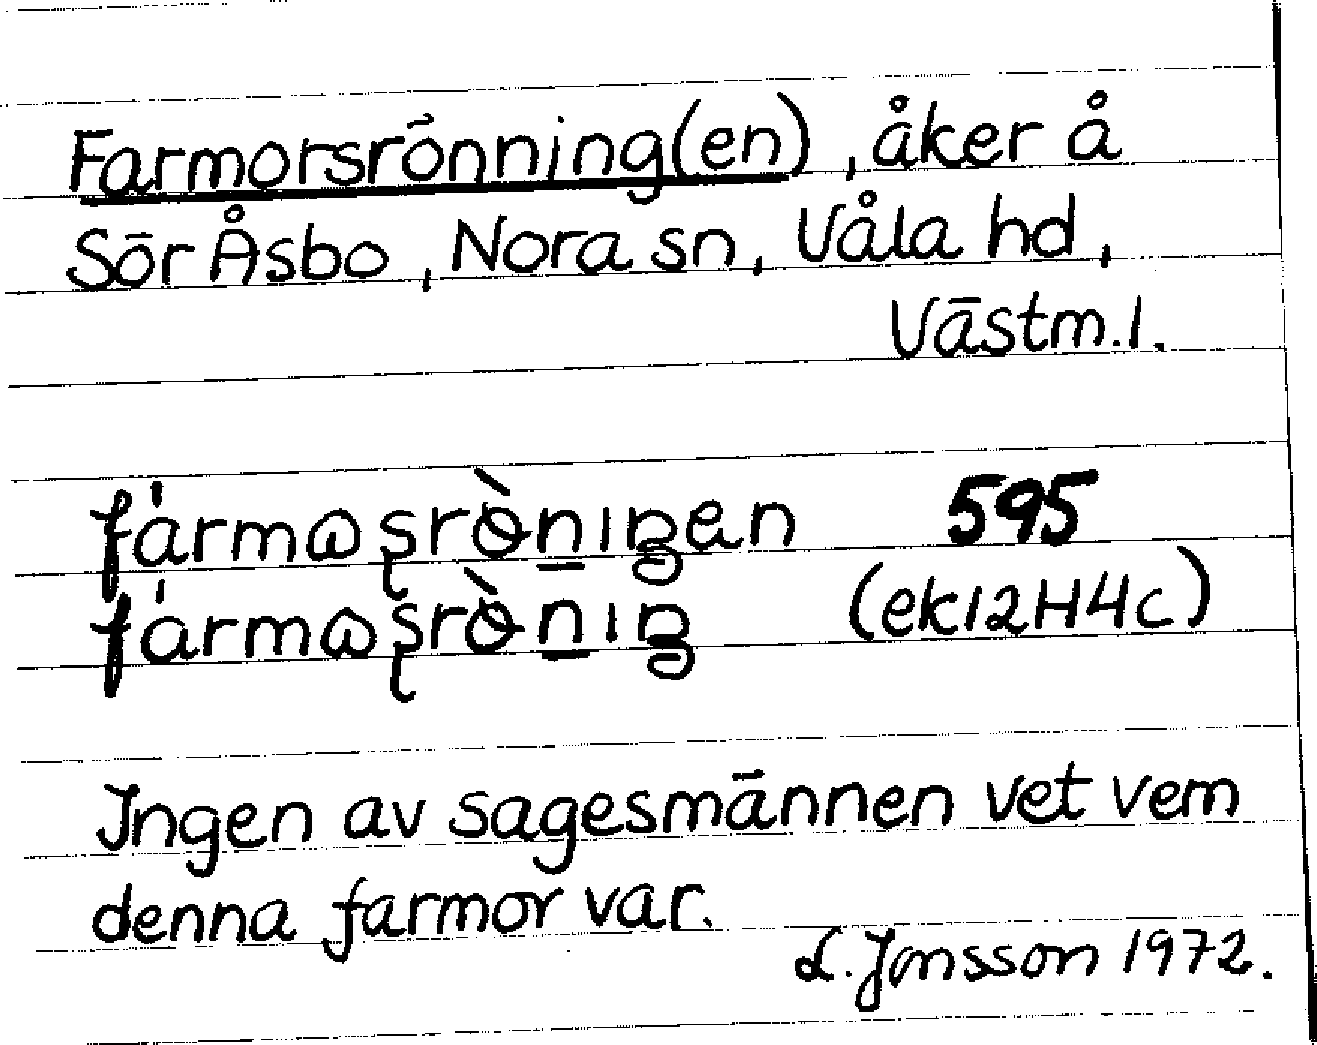 Farmorsrönning(en), åker å
Sör Åsbo, Nora sn, Våla hd,
Västm.l.
fármωʂrὸ̀n̲ıŋen 595
fármωʂrὸ̀n̲ıŋ (ek12H4c)
Ingen av sagesmännen vet vem
denna farmor var.
L. Jonsson 1972.